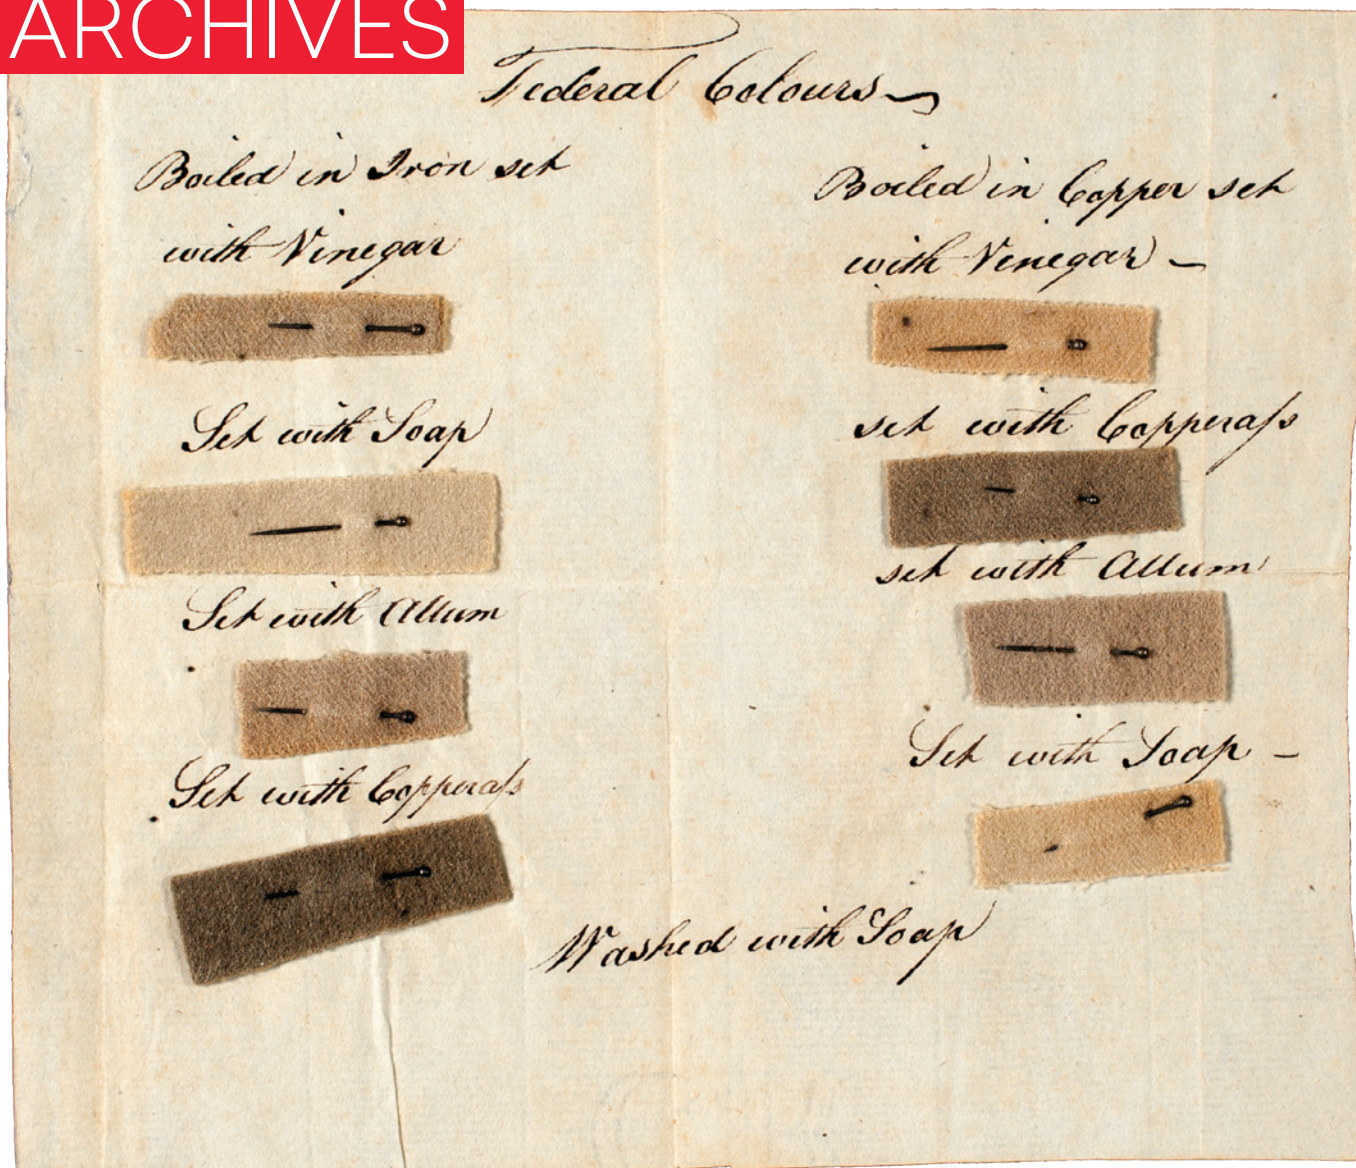 ARCHIVES
Federal Colours
Boiled in Iron set
with Vinegar
Set with Soap
Set with Allum
Set with Copperaſs
Boiled in Copper set
with Vinegar –
set with Copperaſs
set with Allum
Set with Soap –
Washed with Soap